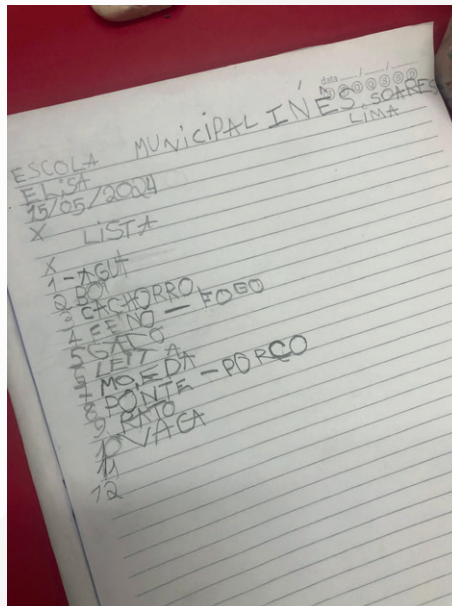 data __/__/__
ESCOLA MUNICIPAL INÊS SOARES
LIMA
ELISA
15/05/2024
X LISTA
X
1-AGUA
2 BOI
3 CACHORRO
4 FENO - FOGO
5 GALO
6 LEITA
7 MOEDA
8 PONTE - PORCO
9 RATO
10 VAGA
11
12